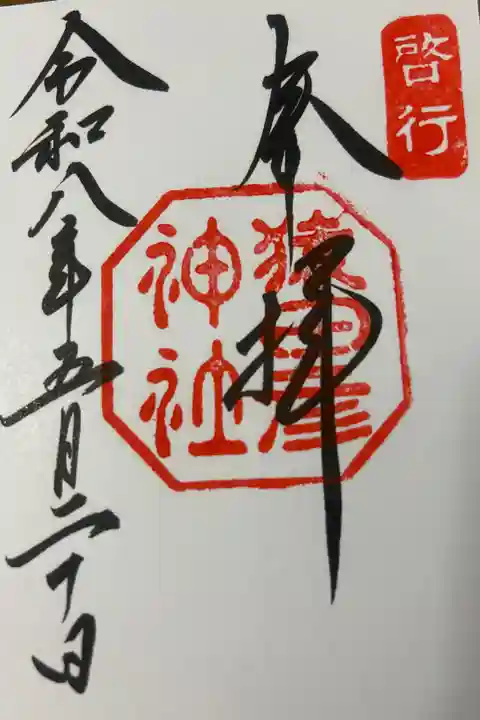 啓行
奉拝
猿田彦
神社
令和八年五月二十日